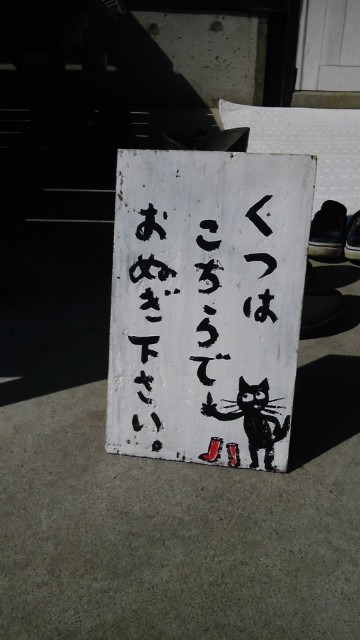 くつは
こちらで
おぬぎ下さい。